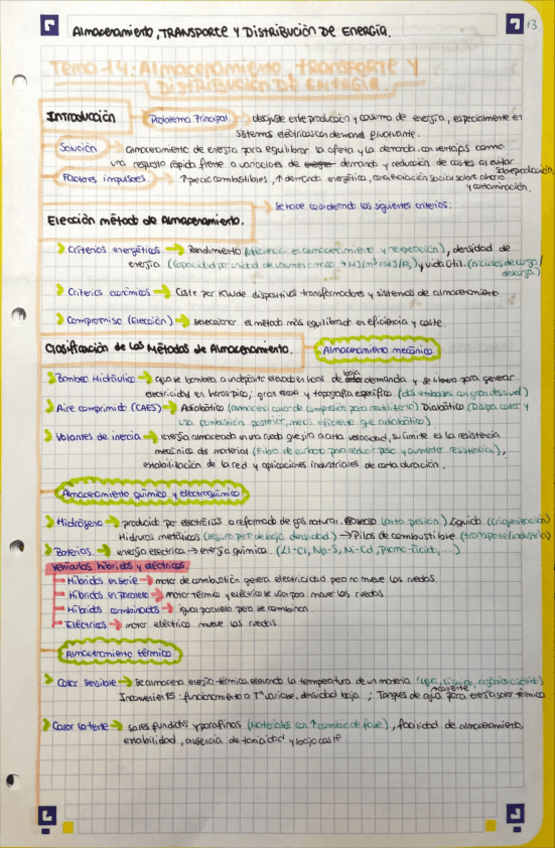 Almacenamiento, TRANSPORTE Y DISTRIBUCIÓN DE ENERGÍA.
13
Tema 14: Almacenamiento, transporte y
DISTRIBUCIÓN DE ENERGÍA
Introducción
Problema Principal → desajuste entre producción y consumo de energía, especialmente en
sistemas eléctricos con demanda fluctuante.
Solución → almacenamiento de energía para equilibrar la oferta y la demanda, con ventajas como
una respuesta rápida frente a variaciones de demanda y reducción de costes al evitar
sobreproducción
Factores impulsores → ↑ precio combustibles, ↑ demanda energética, concienciación social sobre ahorro
y contaminación.
Elección método de Almacenamiento.
→ Se hace considerando los siguientes criterios:
Criterios energéticos → Rendimiento (eficiencia en almacenamiento y recuperación), densidad de
energía (capacidad por unidad de volumen o masa → MJ/m³ o MJ/kg) y vida útil. (nº ciclos de carga/
descarga)
Criterios económicos → Coste por kW de dispositivos transformadores y sistemas de almacenamiento
Compromiso (Elección) → seleccionar el método más equilibrado en eficiencia y coste.
Clasificación de los Métodos de Almacenamiento.
Almacenamiento mecánico
Bombeo Hidráulico → agua se bombea a un depósito elevado en horas de baja demanda y se libera para generar
electricidad en horas pico; gran escala y topografía específica (dos embalses con gran desnivel)
Aire comprimido (CAES) → Adiabático (almacena calor de compresión para reutilizarlo) Diabático (Disipa calor y
usa combustión posterior, menos eficiente que adiabático)
Volantes de inercia → energía almacenada en una rueda que gira a alta velocidad, su límite es la resistencia
mecánica del material (Fibra de carbono para reducir peso y aumentar resistencia),
estabilización de la red y aplicaciones industriales de corta duración.
Almacenamiento químico y electroquímico
Hidrógeno → producido por electrólisis o reformado de gas natural. Gaseoso (alta presión) Líquido (criogenización)
Hidruros metálicos (seguro pero de baja densidad) → Pilas de combustible (transporte/industria)
Baterías. → energía eléctrica → energía química. (Li-Ci, Na-S, Ni-Cd, Plomo-ácido, ...)
Vehículos híbridos y eléctricos
Híbridos en serie → motor de combustión genera electricidad pero no mueve las ruedas.
Híbridos en paralelo → motor térmico y eléctrico se usa para mover las ruedas
Híbridos combinados → igual paralelo pero se combinan.
Eléctricos → motor eléctrico mueve las ruedas.
Almacenamiento térmico
Calor sensible → Se almacena energía térmica elevando la temperatura de un material
Inconvenientes: funcionamiento a Tª variable, densidad baja ; Tanques de agua caliente para energía solar térmica
Calor latente → sales fundidas y parafinas (Materiales con ↑ cambio de fase), facilidad de almacenamiento,
estabilidad, ausencia de toxicidad y bajo coste.